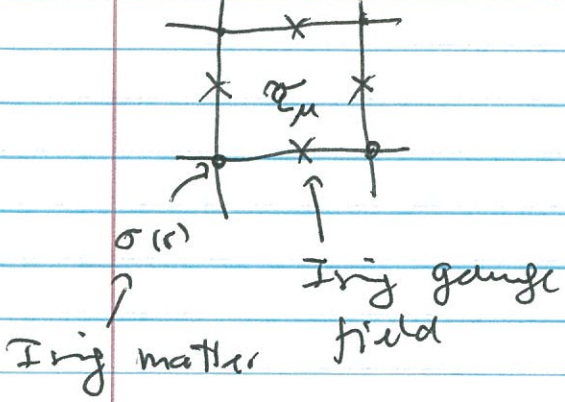 τ_μ
σ(r)
Ising gauge
field
Ising matter